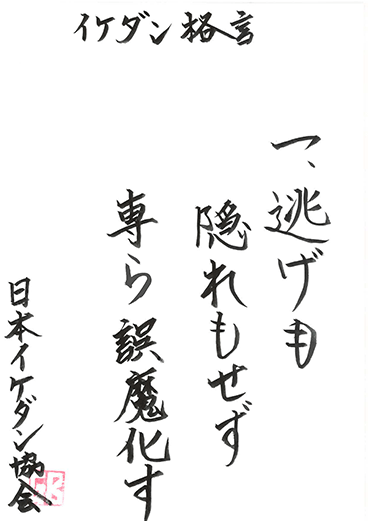 イケダン格言
一、逃げも
隠れもせず
専ら誤魔化す
日本イケダン協会